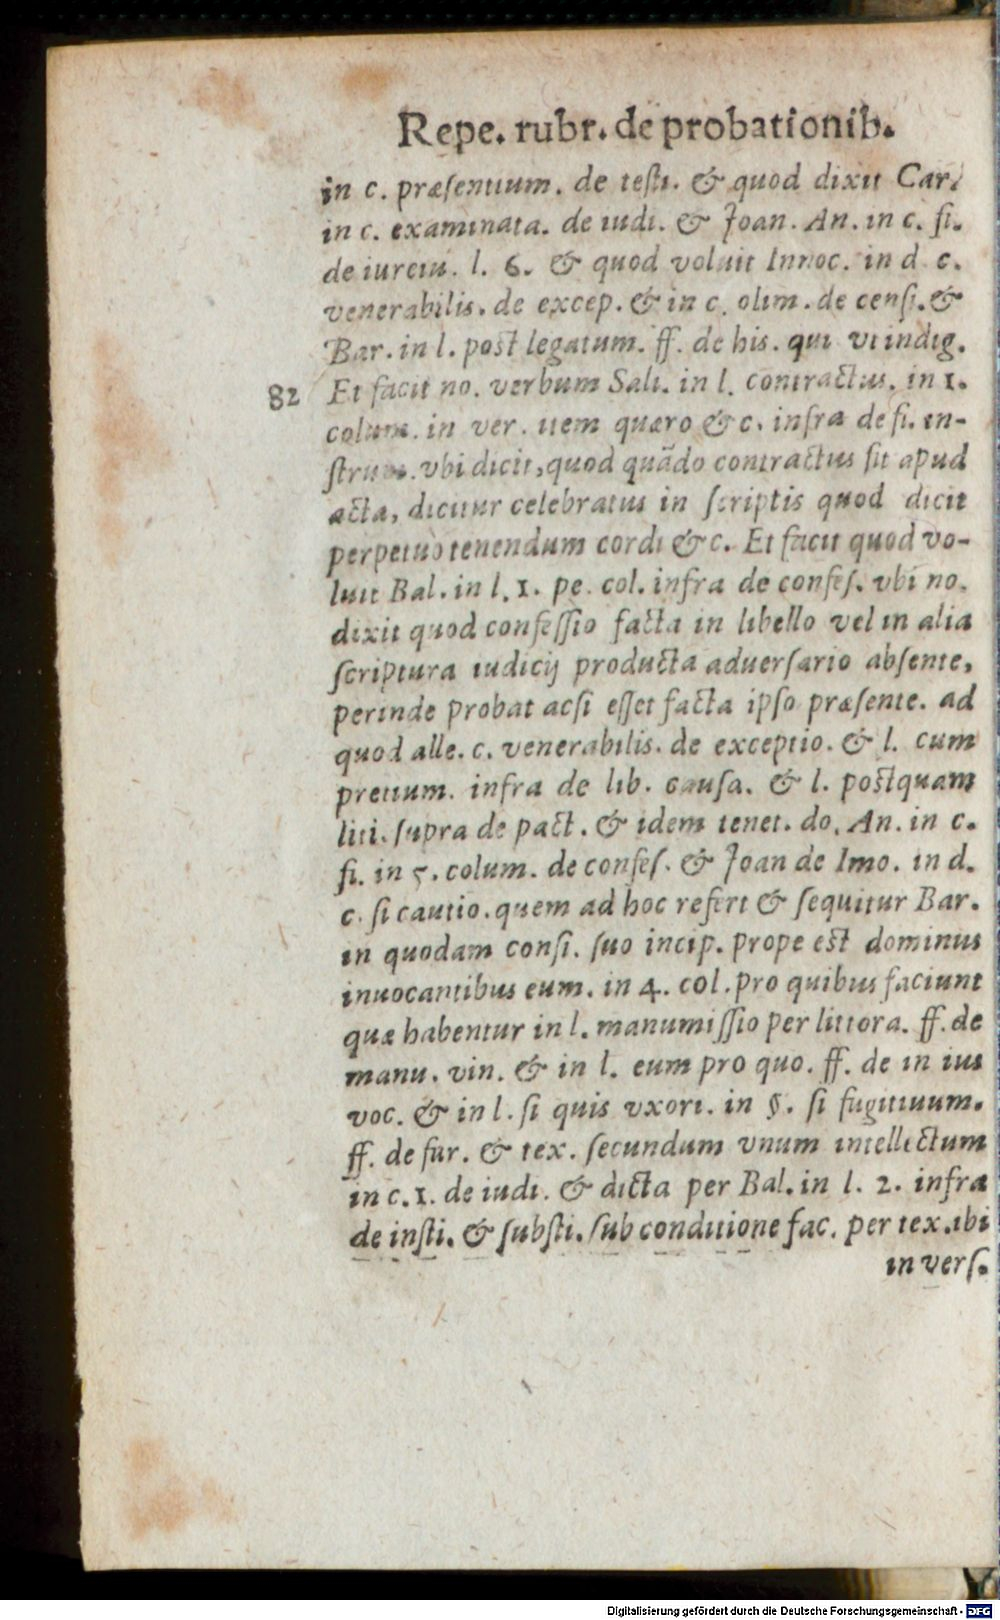 Repe. rubr. de probationib.
in c. præsentium. de testi. & quod dixit Car.
in c. examinata. de iudi. & Joan. An. in c. fi.
de iureiu. l. 6. & quod voluit Innoc. in d. c.
venerabilis. de excep. & in c. olim. de censi. &
Bar. in l. post legatum. ff. de his. qui vt indig.
82 Et facit no. verbum Sali. in l. contractus. in 1.
colum. in ver. item quæro &c. infra de fi. in-
strum. vbi dicit, quod quãdo contractus sit apud
acta, dicitur celebratus in scriptis quod dicit
perpetuo tenendum cordi &c. Et facit quod vo-
luit Bal. in l. 1. pe. col. infra de confes. vbi no.
dixit quod confessio facta in libello vel in alia
scriptura iudicij producta aduersario absente,
perinde probat acsi esset facta ipso præsente. ad
quod alle. c. venerabilis. de exceptio. & l. cum
pretium. infra de lib. causa. & l. postquam
liti. supra de pact. & idem tenet. do. An. in c.
fi. in 5. colum. de confes. & Joan de Imo. in d.
c. si cautio. quem ad hoc refert & sequitur Bar.
in quodam consi. suo incip. prope est dominus
inuocantibus eum. in 4. col. pro quibus faciunt
quæ habentur in l. manumissio per littora. ff. de
manu. vin. & in l. eum pro quo. ff. de in ius
voc. & in l. si quis vxori. in §. si fugitiuum.
ff. de fur. & tex. secundum vnum intellectum
in c. 1. de iudi. & dicta per Bal. in l. 2. infra
de insti. & substi. sub conditione fac. per tex. ibi
in vers.
Digitalisierung gefördert durch die Deutsche Forschungsgemeinschaft - DFG